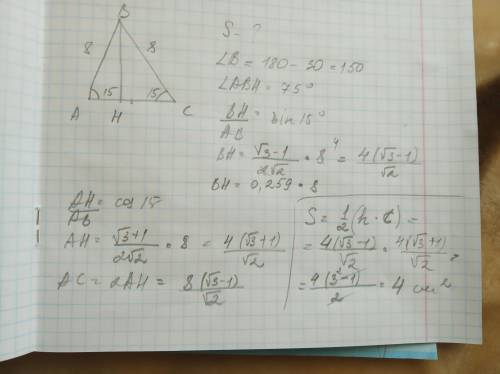 B
8 8
15 15
A H C
S - ?
∠B = 180 - 30 = 150
∠ABH = 75°
BH/AB = sin 15°
BH = (√3-1)/(2√2) · 8 4 = 4(√3-1)/√2
BH = 0,259 · 8
AH/AB = cos 15
AH = (√3+1)/(2√2) · 8 = 4(√3+1)/√2
AC = 2AH = 8(√3-1)/√2
S = 1/2(h · C) =
= 4(√3-1)/√2 · 4(√3+1)/√2 =
= 4(3²-1)/2 = 4 см²